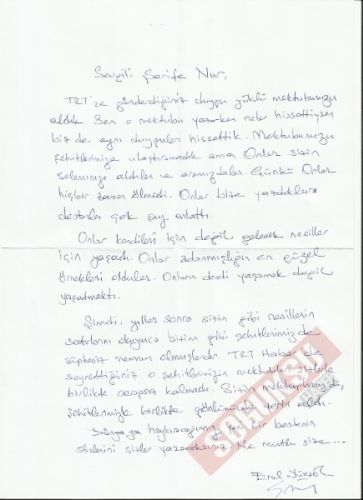 Sevgili Şerife Nur,
TRT'ye gönderdiğiniz duygu yüklü mektubunuzu
aldık. Sen o mektubu yazarken neler hissettiysen
biz de aynı duyguları hissettik. Mektubunuzu
şehitlerimize ulaştıramadık ama Onlar sizin
selamınızı aldılar ve aramızdalar. Çünkü Onlar
hiçbir zaman ölmedi. Onlar bize yazdıkları
destanla çok şey anlattı.
Onlar kendileri için değil gelecek nesiller
için yaşadı. Onlar adanmışlığın en güzel
örnekleri oldular. Onların derdi yaşamak değil
yaşatmaktı.
Şimdi, yıllar sonra sizin gibi nesillerin
satırlarını okuyunca bizim gibi şehitlerimiz de
şüphesiz memnun olmuşlardır. TRT Haber'de
seyrettiğiniz o şehitlerimizin mektupları sizlerle
birlikte cevapsız kalmadı. Sizin mektuplarınız da
şehitlerimizle birlikte gönlümüzde yerini aldı.
Dünyaya haykıracağımız yeni bir bestenin
sözlerini sizler yazacaksınız. Ne mutlu size...
Erol Yüksel